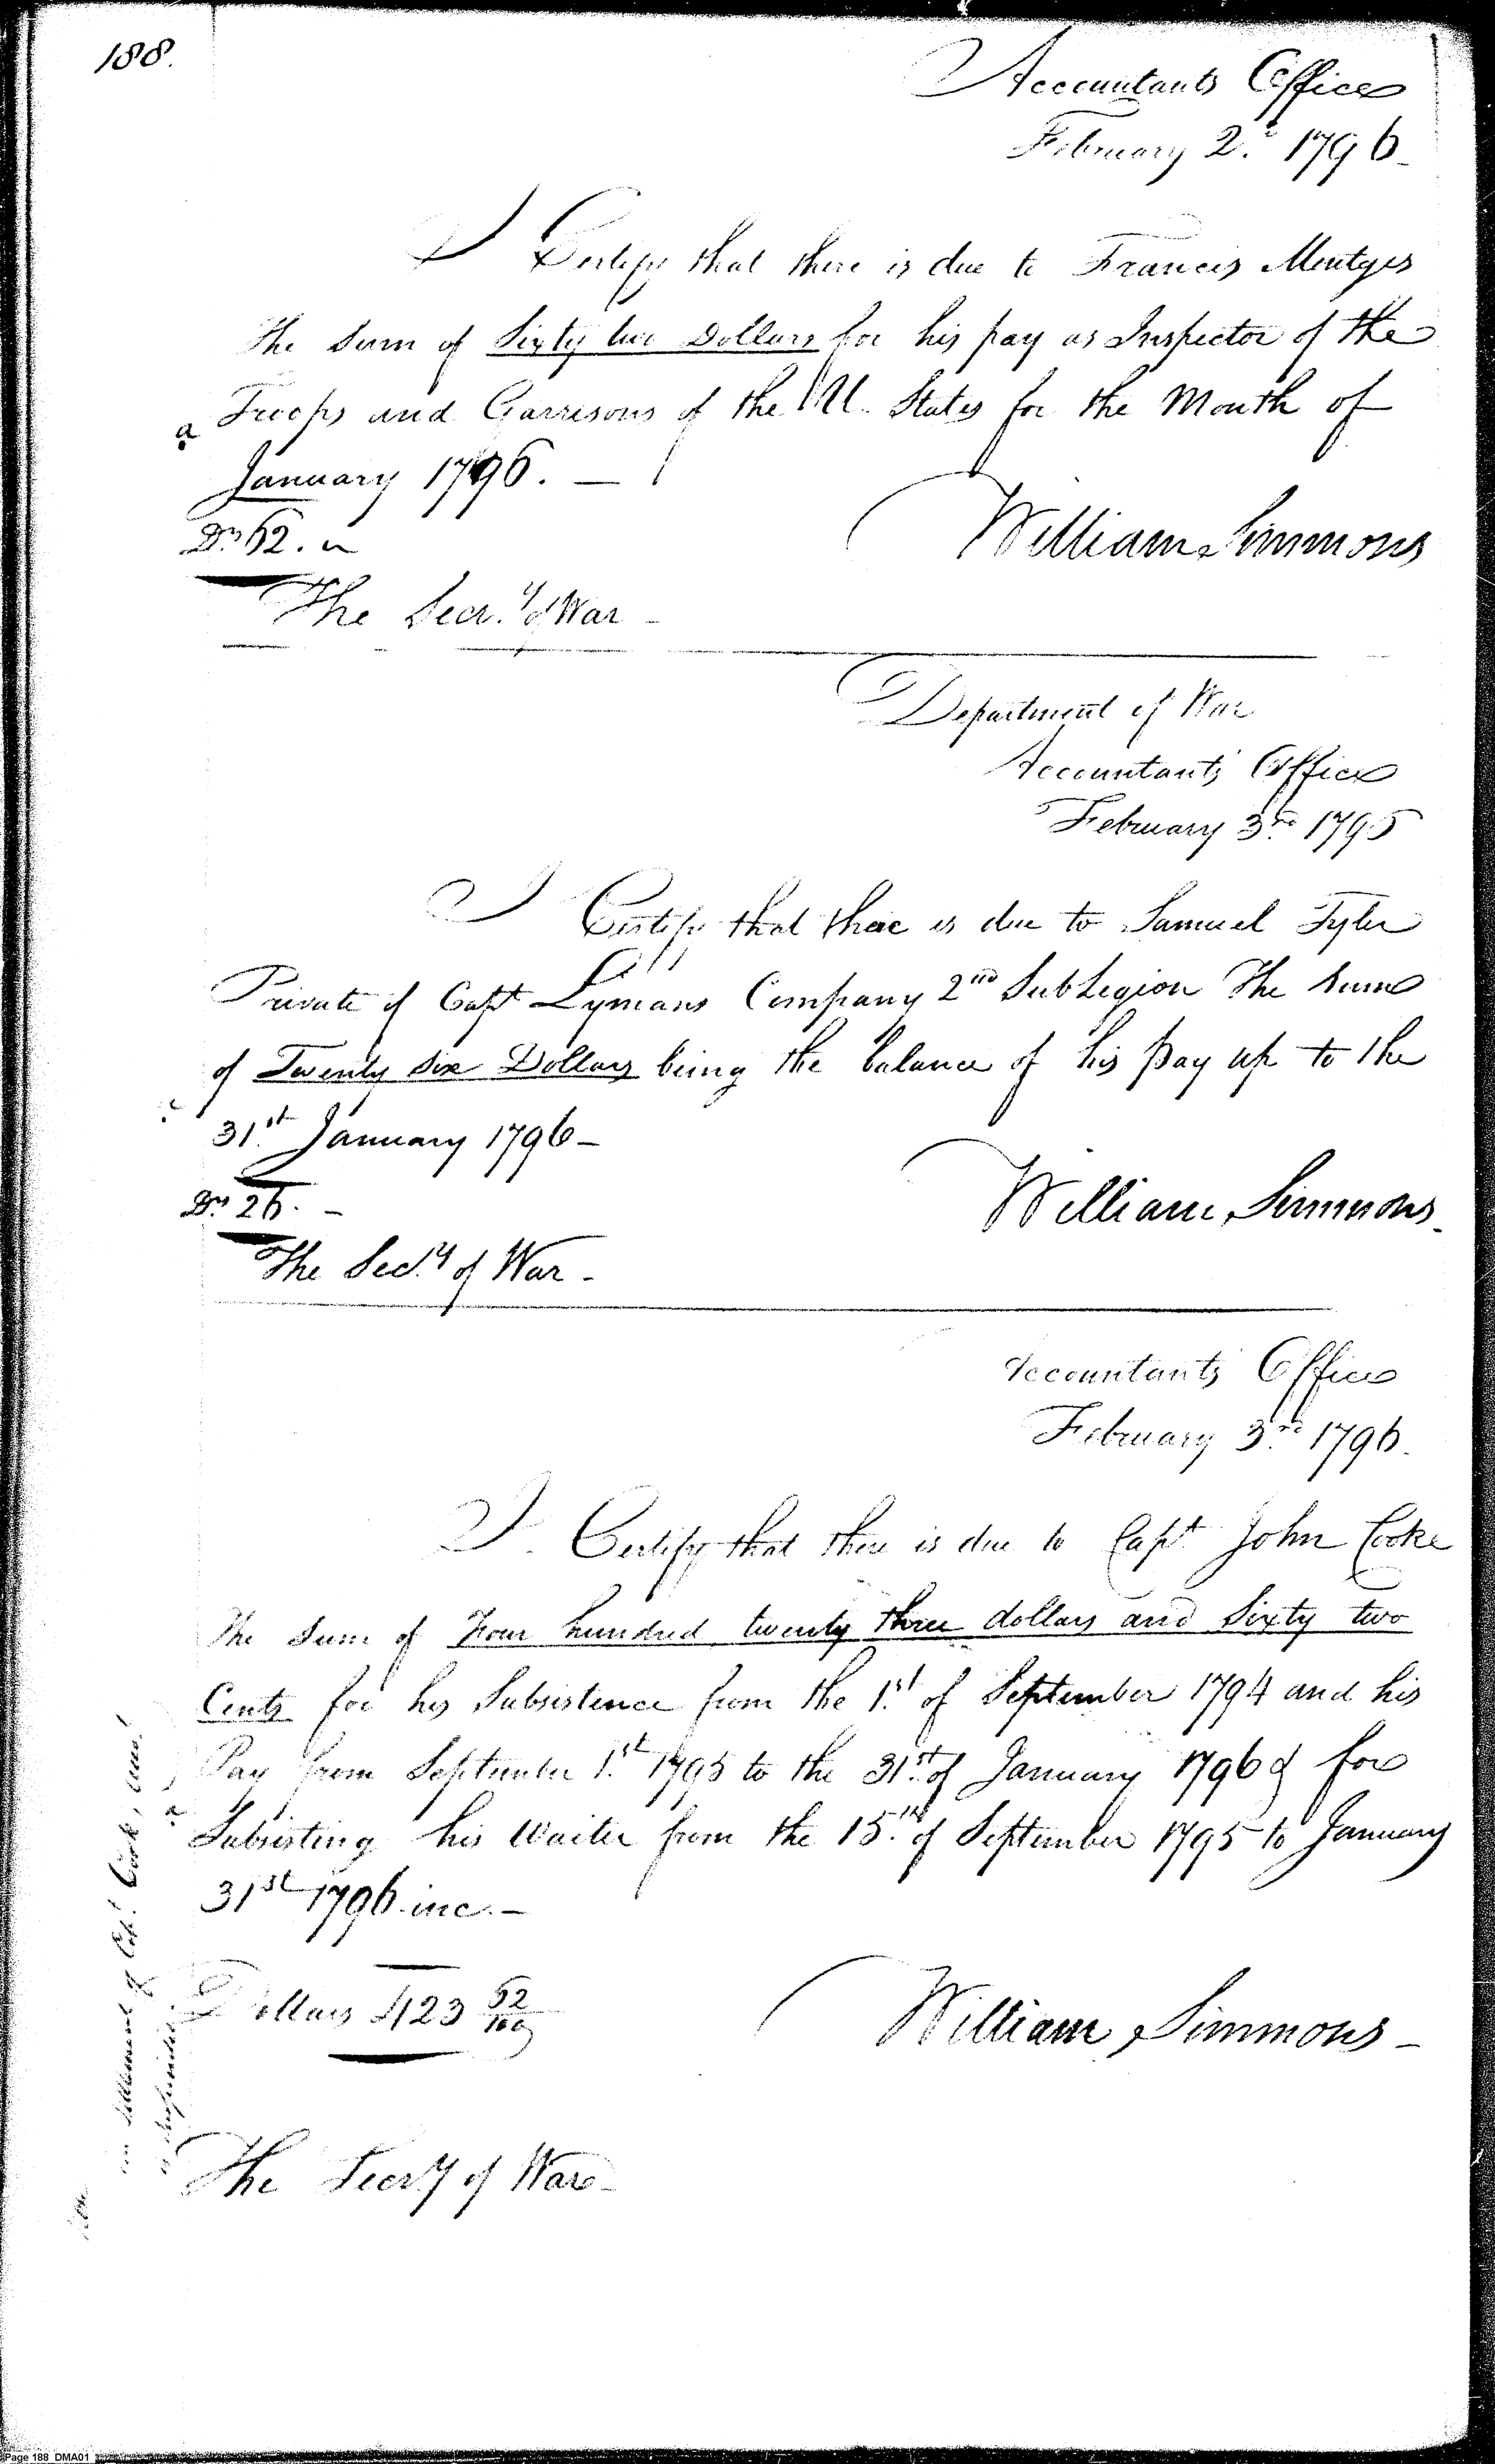 188.
Accountants Office
February 2.d 1796.
I Certify that there is due to Francis Mentges
the Sum of Sixty two Dollars for his pay as Inspector of the
Troops and Garrisons of the U. States for the Month of
a
January 1796. —
Drs 62.
William Simmons
The Secr.y of War -
Department of War
Accountants Office
February 3rd 1795
I Certify that there is due to Samuel Tyler
Private of Capt Lymans Company 2nd Sub Legion the sum
of Twenty six Dollars being the balance of his pay up to the
31st January 1796 -
Drs 26. -
William Simmons.
The Sec.y of War -
Accountants Office
February 3rd 1796.
I Certify that there is due to Capt John Cooke
the Sum of Four hundred twenty three dollars and Sixty two
Cents for his Subsistence from the 1st of September 1794 and his
Pay from September 1st 1795 to the 31st of January 1796 & for
a
Subsisting his Waiter from the 15.th of September 1795 to January
31st 1796 inc. -
Dollars 423 62/100
William Simmons -
The Secry of War -
settlement of Cap.t Cook's
Page 188 DMA01